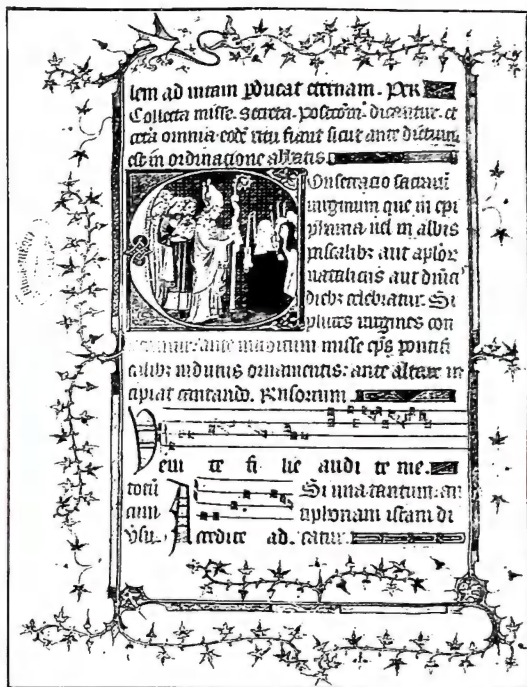 lem ad uitam pducat eternam. Per
Collecta misse. Secreta. postcom̄. dicantur. et
cetā omnia eodē ritu fiant sicut ante dictum
est in ordinacione abbatis.
Consecracio sacrarū
uirginum que in epi
phania uel in albis
pascalibꝫ aut aplor
nataliciis aut dn̄icꝭ
diebꝫ celebratur. Si
plures uirgines con
ante introitum misse ep̄s pontifi
calibꝫ indutus ornamentis: ante altare in
cipiat cantando. Rn̄sorium
Ueni te fi lie audi te me.
totū
cum
v̄su.
Accedite ad.
Si una tantum: an
tiphonam istam di
catur.